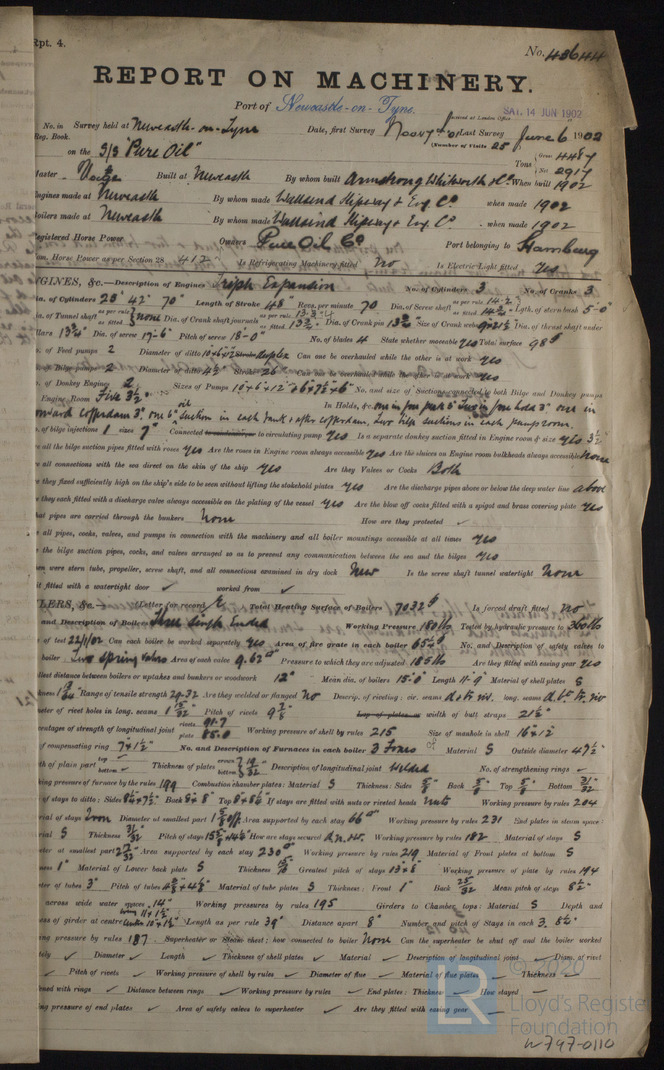 Rpt. 4.
No. 43644
REPORT ON MACHINERY.
Port of Newcastle-on-Tyne.
Received at London Office SAT. 14 JUN 1902
No. in Survey held at Newcastle-on-Tyne Date, first Survey Last Survey June 6 1902
Reg. Book. (Number of Visits 25
on the S/S "Pure Oil" Tons { Gross 4487 Net 2917
Master Built at Newcastle By whom built Armstrong Whitworth & Co. When built 1902
Engines made at Newcastle By whom made Wallsend Slipway & Eng. Co. when made 1902
Boilers made at Newcastle By whom made Wallsend Slipway & Eng. Co. when made 1902
Registered Horse Power Owners Pure Oil Co Port belonging to Hamburg
Nom. Horse Power as per Section 28 412 Is Refrigerating Machinery fitted No Is Electric Light fitted Yes
ENGINES, &c.—Description of Engines Triple Expansion No. of Cylinders 3 No. of Cranks 3
Dia. of Cylinders 25" 42" 70" Length of Stroke 48" Revs. per minute 70 Dia. of Screw shaft as per rule 14.2 as fitted Lgth. of stern bush 5-0"
Dia. of Tunnel shaft as per rule as fitted none Dia. of Crank shaft journals as per rule as fitted Dia. of Crank pin Size of Crank webs Dia. of thrust shaft under
collars 13¾" Dia. of screw 17-6" Pitch of screw 18-0" No. of blades 4 State whether moveable yes Total surface 98
No. of Feed pumps 2 Diameter of ditto Stroke duplex Can one be overhauled while the other is at work yes
No. of Bilge pumps 2 Diameter of ditto 4½" Stroke 26" Can one be overhauled while the other is at work yes
No. of Donkey Engines 2 Sizes of Pumps No. and size of Suctions connected to both Bilge and Donkey pumps
In Engine Room Five 3½" In Holds, &c. one in
forward cofferdam 3" one 6" oil suction in each tank & after cofferdam, Two bilge suctions in each pump room.
No. of bilge injections 1 sizes 7" Connected to circulating pump yes Is a separate donkey suction fitted in Engine room & size yes 3½
Are all the bilge suction pipes fitted with roses yes Are the roses in Engine room always accessible yes Are the sluices on Engine room bulkheads always accessible none
Are all connections with the sea direct on the skin of the ship yes Are they Valves or Cocks Both
Are they fixed sufficiently high on the ship's side to be seen without lifting the stokehold plates yes Are the discharge pipes above or below the deep water line above
Are they each fitted with a discharge valve always accessible on the plating of the vessel yes Are the blow off cocks fitted with a spigot and brass covering plate yes
What pipes are carried through the bunkers none How are they protected ✓
Are all pipes, cocks, valves, and pumps in connection with the machinery and all boiler mountings accessible at all times yes
Are the bilge suction pipes, cocks, and valves arranged so as to prevent any communication between the sea and the bilges yes
When were stern tube, propeller, screw shaft, and all connections examined in dry dock New Is the screw shaft tunnel watertight none
Is it fitted with a watertight door ✓ worked from ✓
BOILERS, &c.— (Letter for record E Total Heating Surface of Boilers 7032 Is forced draft fitted No
No. and Description of Boilers Three Single Ended Working Pressure 180 lbs Tested by hydraulic pressure to 360 lbs
Date of test 22/1/02 Can each boiler be worked separately yes Area of fire grate in each boiler 65 No. and Description of safety valves to
each boiler Two Spring valves Area of each valve 9.62" Pressure to which they are adjusted 185 lbs Are they fitted with easing gear yes
Smallest distance between boilers or uptakes and bunkers or woodwork 12" Mean dia. of boilers 15-0" Length 11-9" Material of shell plates S
Thickness Range of tensile strength 29-32 Are they welded or flanged No Descrip. of riveting: cir. seams d.r. riv. long. seams d.b.s. riv
Diameter of rivet holes in long. seams Pitch of rivets width of butt straps 21½"
Percentages of strength of longitudinal joint rivets 91.7 plate 85.0 Working pressure of shell by rules 215 Size of manhole in shell 16"x12"
Size of compensating ring 7"x1½" No. and Description of Furnaces in each boiler 3 Foxes Material S Outside diameter 47½"
Length of plain part top bottom Thickness of plates crown bottom Description of longitudinal joint Welded No. of strengthening rings ✓
Working pressure of furnace by the rules 199 Combustion chamber plates: Material S Thickness: Sides 5/8" Back 5/8" Top 5/8" Bottom 31/32
Pitch of stays to ditto: Sides Back 8x8" Top If stays are fitted with nuts or riveted heads nuts Working pressure by rules 204
Material of stays Iron Diameter at smallest part Area supported by each stay 66 Working pressure by rules 231 End plates in steam space:
Material S Thickness 31/32 Pitch of stays How are stays secured d.n.w. Working pressure by rules 182 Material of stays S
Diameter at smallest part Area supported by each stay 230 Working pressure by rules 219 Material of Front plates at bottom S
Thickness 1" Material of Lower back plate S Thickness Greatest pitch of stays 13x8 Working pressure of plate by rules 194
Diameter of tubes 3" Pitch of tubes Material of tube plates S Thickness: Front 1" Back 25/32 Mean pitch of stays
Pitch across wide water spaces 14" Working pressures by rules 195 Girders to Chamber tops: Material S Depth and
thickness of girder at centre Length as per rule 39" Distance apart 8" Number and pitch of Stays in each 3, 8½"
Working pressure by rules 187 Superheater or Steam chest; how connected to boiler None Can the superheater be shut off and the boiler worked
separately ✓ Diameter ✓ Length ✓ Thickness of shell plates ✓ Material ✓ Description of longitudinal joint ✓ Diam. of rivet
holes ✓ Pitch of rivets ✓ Working pressure of shell by rules ✓ Diameter of flue ✓ Material of flue plates ✓ Thickness
Stiffened with rings ✓ Distance between rings ✓ Working pressure by rules ✓ End plates: Thickness ✓ How stayed ✓
Working pressure of end plates ✓ Area of safety valves to superheater ✓ Are they fitted with easing gear ✓
© 2020
LR Lloyd's Register
Foundation
W797-0110